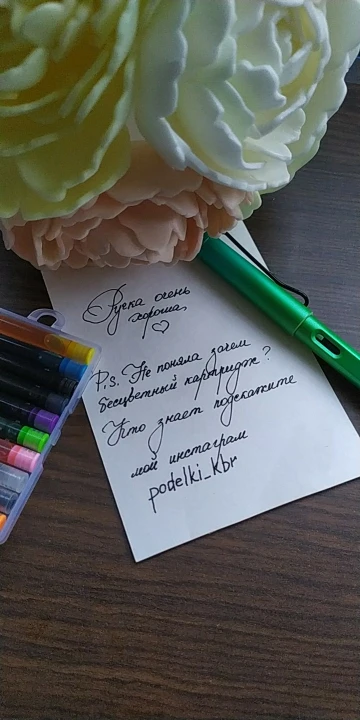 Ручка очень
хороша
P.s. Не поняла зачем
бесцветный картридж?
Кто знает подскажите
мой инстаграм
podelki_kbr